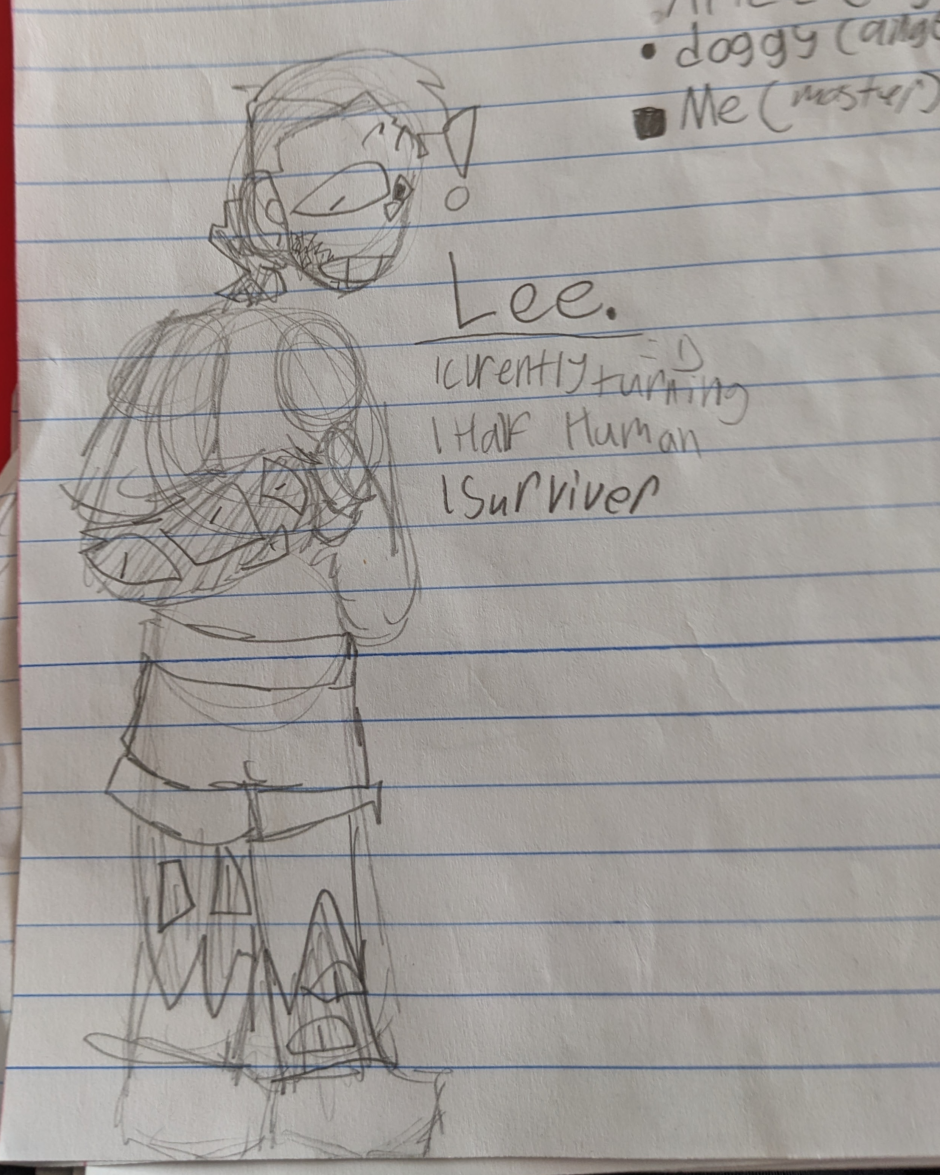 • doggy (
■ Me (master)
!
Lee.
=D
|curently turning
|Half Human
|Surviver